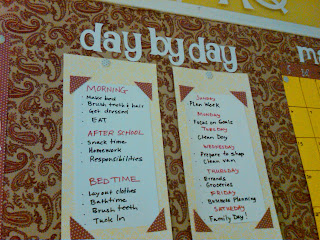 day by day
MORNING
· Make bed
· Brush teeth & hair
· Get dressed
· EAT
AFTER SCHOOL
· Snack time
· Homework
· Responsibilities
BEDTIME
· Layout clothes
· Bathtime
· Brush teeth
· Tuck In
SUNDAY
· Plan Week
MONDAY
· Focus on Goals
TUESDAY
· Clean Day
WEDNESDAY
· Prepare to shop
· Clean van
THURSDAY
· Errands
· Groceries
FRIDAY
· Business Planning
SATURDAY
· Family Day!